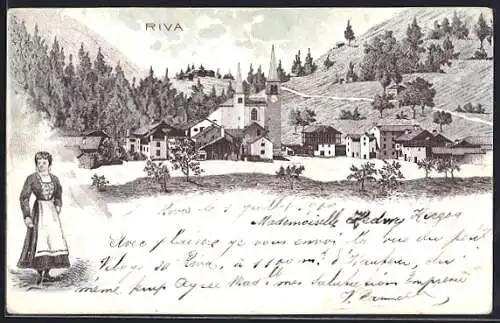 RIVA
Riva le 2 juillet 1900
Mademoiselle Hedwy Herzog
Avec plaisire je vous envoi la vu du petit
Vilage de Riva, à 1100 m. d'Hauteur, du
même temp Agree Mad. mes Salutation Empresé